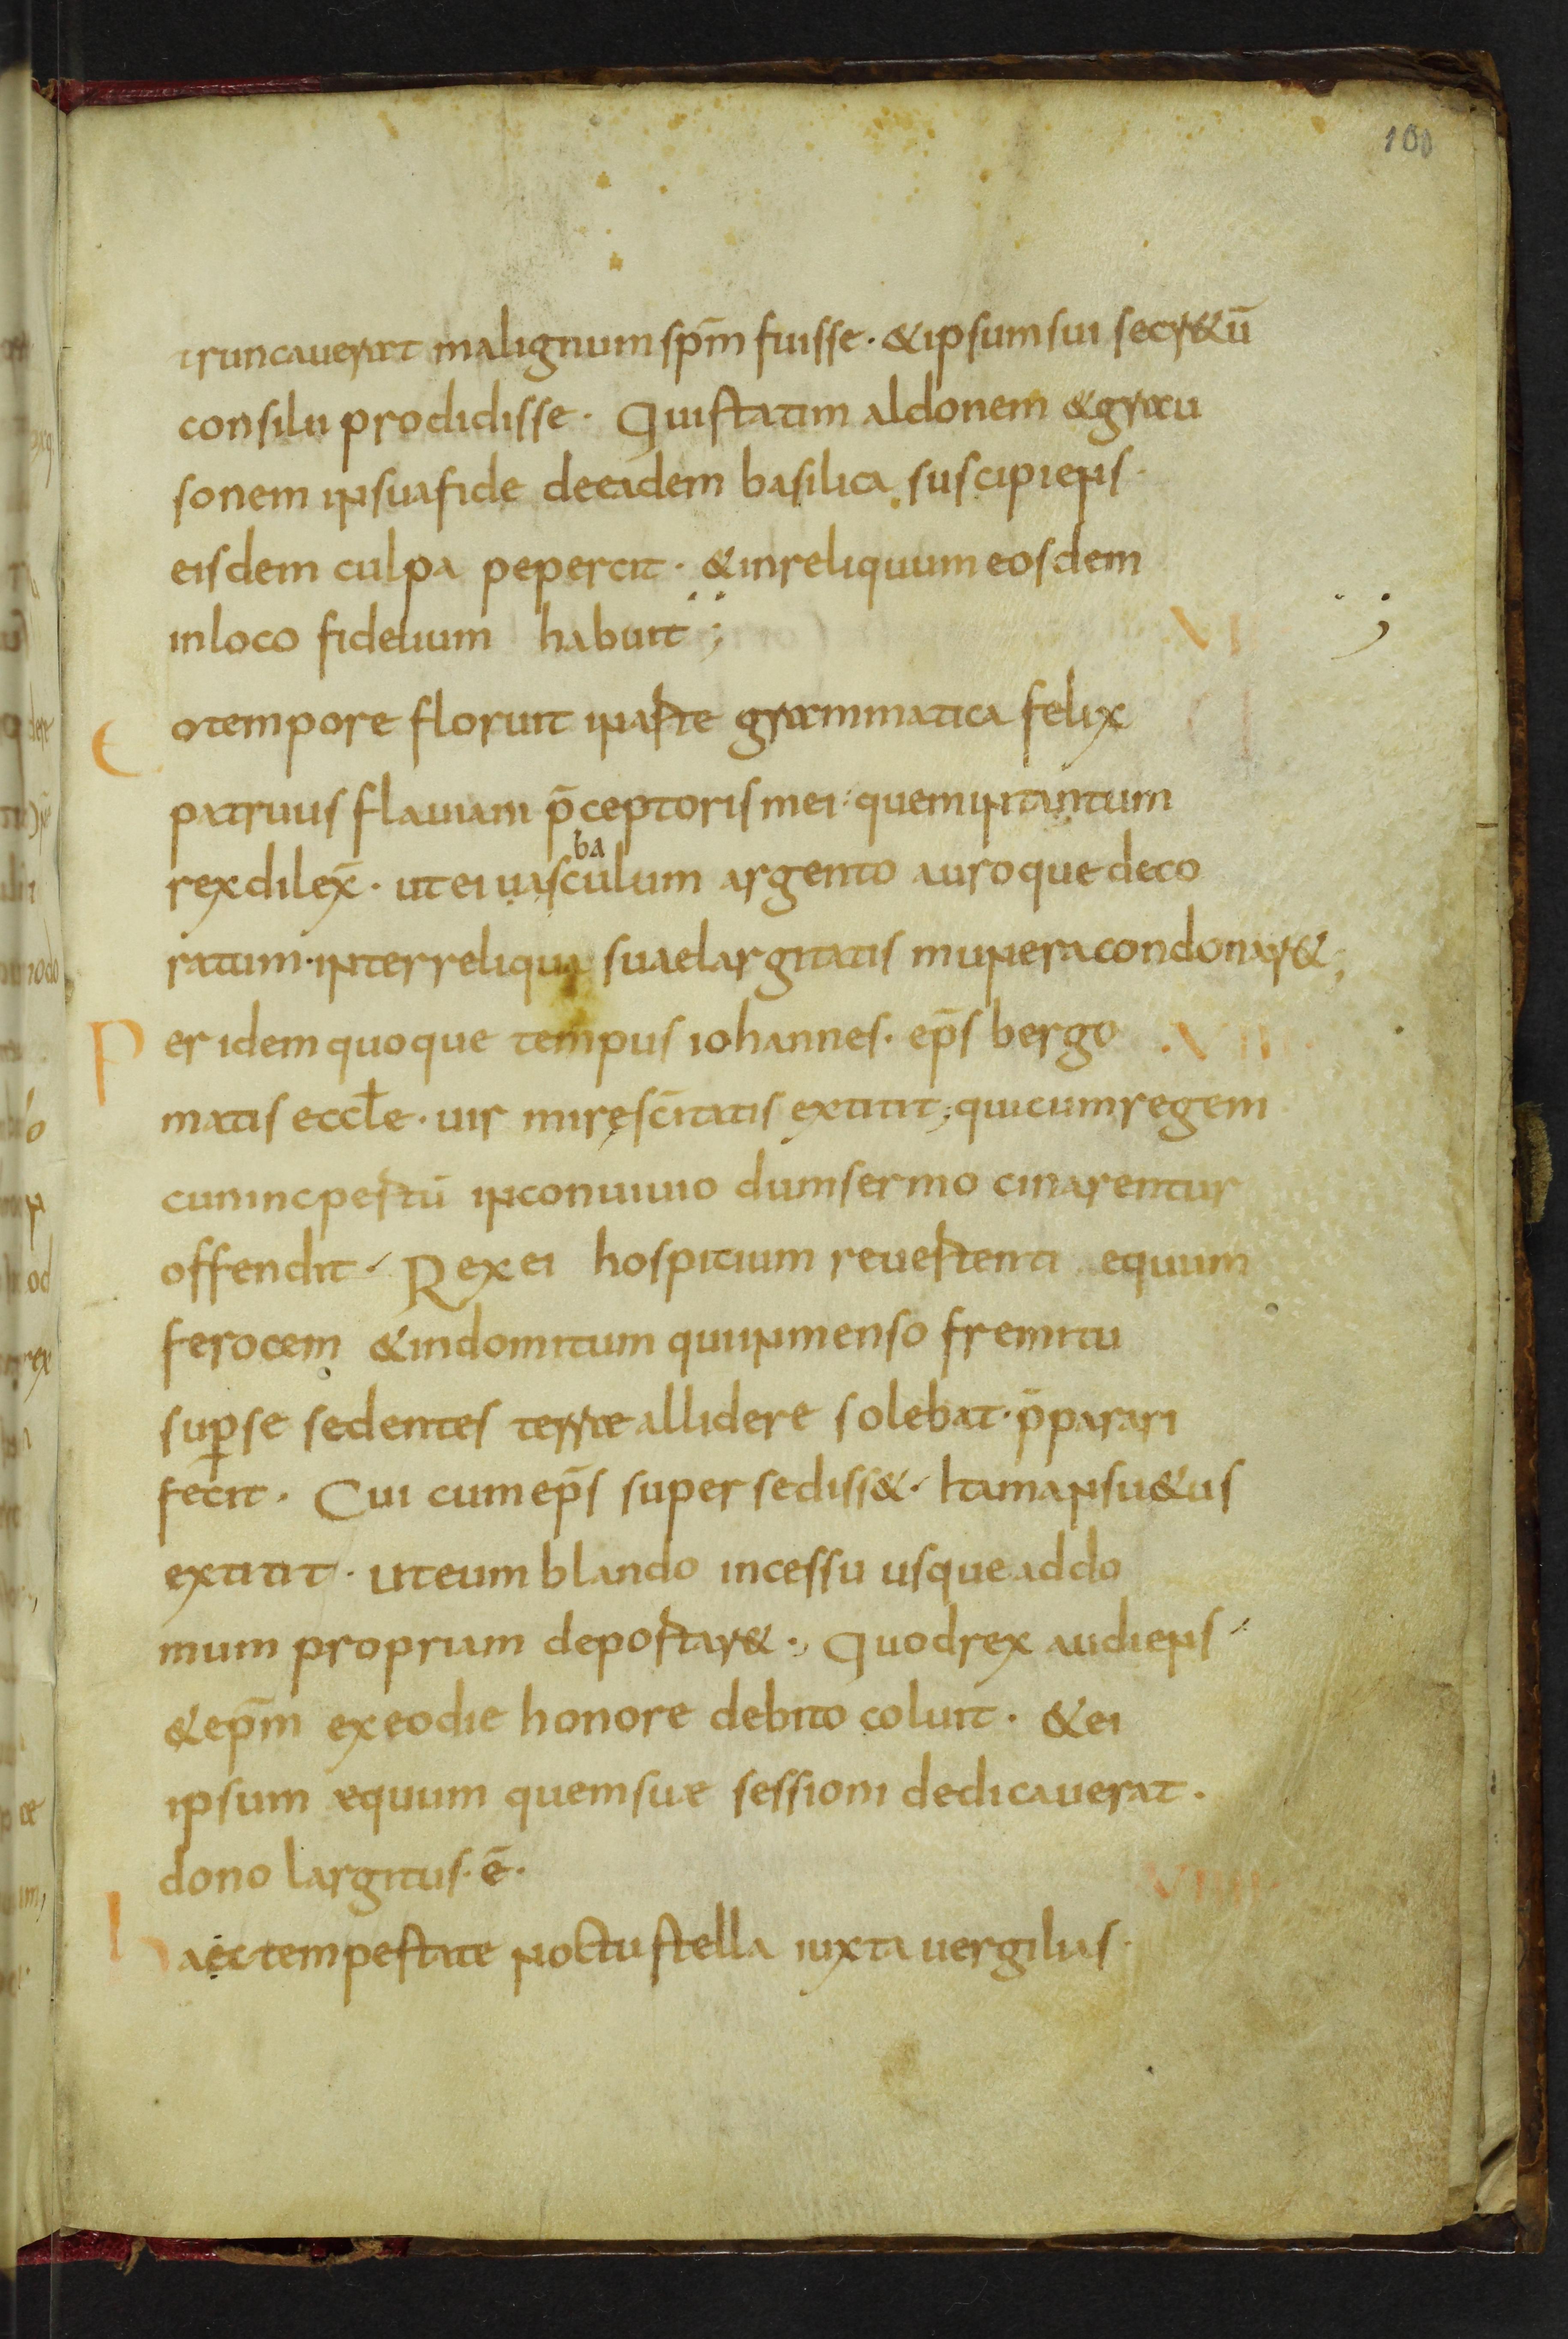 100
truncauerat malignum sp̄m fuisse · & ipsum sui secr&ū
consilii prodidisse · Qui statim aldonem & grau
sonem in sua fide de eadem basilica suscipiens ·
eisdem culpa pepercit · & in reliquum eosdem
in loco fidelium habuit ;
Eo tempore floruit in arte grammatica felix
patruus flauiani p̄ceptoris mei · quem in tantum
rex dilex̄ · ut ei uasculum argento auroque deco
ba
ratum · inter reliqua suae largitatis munera condonar& ;
Per idem quoque tempus iohannes · ep̄s bergo VIII
matis eccłe · uir mirę sc̄itatis extitit ; qui cum regem
cunincpertū in conuiuio dum sermocinarentur
offendit · Rex ei hospitium reuertenti equum
ferocem & indomitum qui inmenso fremitu
sup̱ se sedentes terrae allidere solebat · p̄parari
fecit · Cui cum ep̄s super sediss& · Ita mansu&us
extitit · ut eum blando incessu usque ad do
mum propriam deportar& · Quod rex audiens
& ep̄m ex eo die honore debito coluit · & ei
ipsum equum quem suae sessioni dedicauerat ·
dono largitus · ē · VIIII
haec tempestate noctu stella iuxta uergilias ·